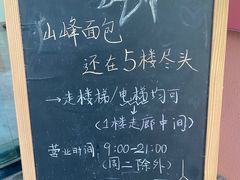 山峰面包
还在5楼尽头
→走楼梯/电梯均可
(1楼走廊中间)
营业时间:9:00-21:00
(周二除外)